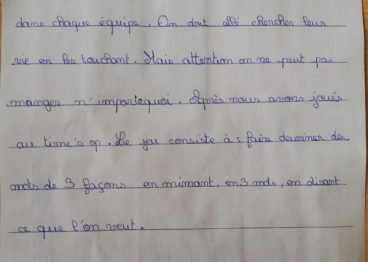 dans chaque équipe. On doit allé chercher leur
vie en les touchant. Mais attention on ne peut pas
manger n'importequoi. Après nous avons joués
au time's op. Le jeu consiste à : faire deviner des
mots de 3 façons en mimant, en 3 mots, en disant
ce que l'on veut.